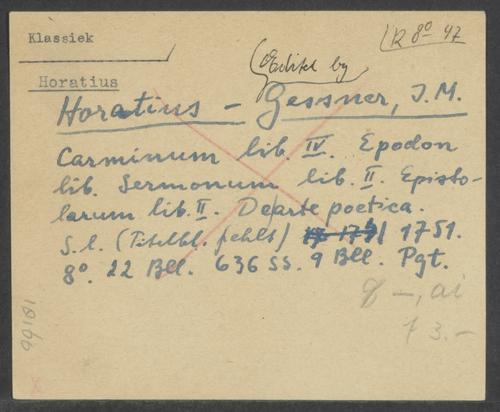 Klassiek
R 8° 47
Horatius
(Edited by
Horatius - Gessner, J.M.
Carminum lib. IV. Epodon
lib. Sermonum lib. II. Episto-
larum lib. II. De arte poetica.
S.l. (Titelbl. fehlt) 1751.
8°. 22 Bll. 636 SS. 9 Bll. Pgt.